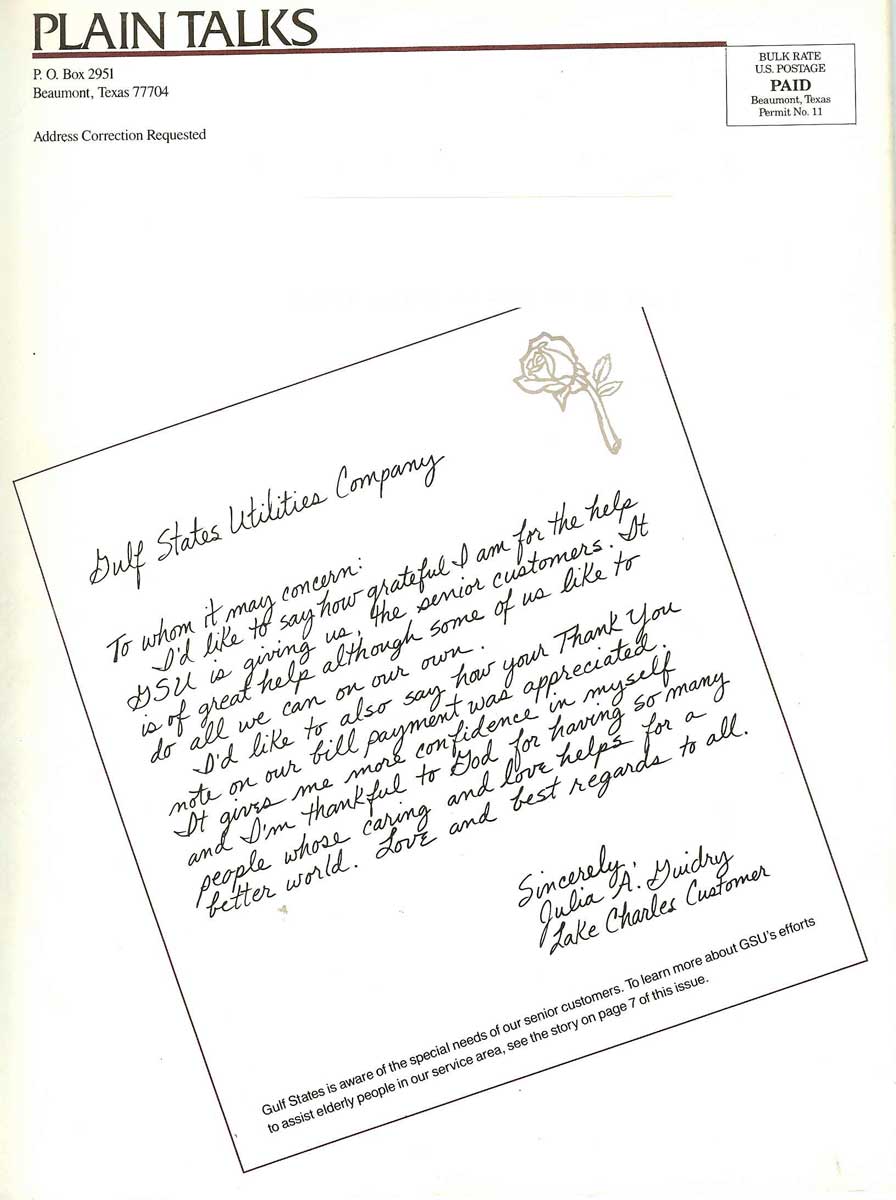 PLAIN TALKS
P. O. Box 2951
Beaumont, Texas 77704
Address Correction Requested
BULK RATE
U.S. POSTAGE
PAID
Beaumont, Texas
Permit No. 11
Gulf States Utilities Company
To whom it may concern:
I'd like to say how grateful I am for the help
GSU is giving us, the senior customers. It
is of great help although some of us like to
do all we can on our own.
I'd like to also say how your Thank You
note on our bill payment was appreciated.
It gives me more confidence in myself
and I'm thankful to God for having so many
people whose caring and love helps for a
better world. Love and best regards to all.
Sincerely,
Julia A. Guidry
Lake Charles Customer
Gulf States is aware of the special needs of our senior customers. To learn more about GSU's efforts
to assist elderly people in our service area, see the story on page 7 of this issue.